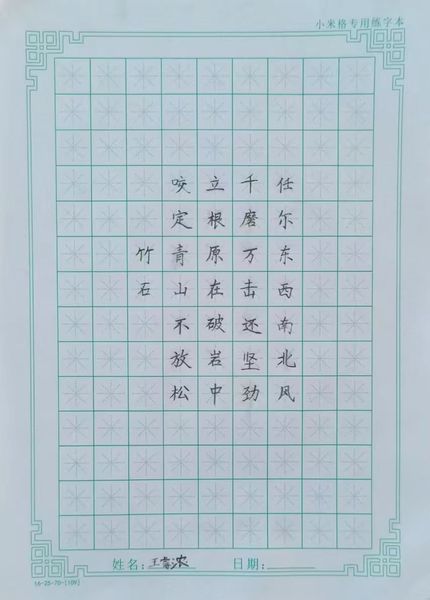 小米格专用练字本
竹石
咬定青山不放松
立根原在破岩中
千磨万击还坚劲
任尔东西南北风
姓名: 日期:
16-25-70-[109]